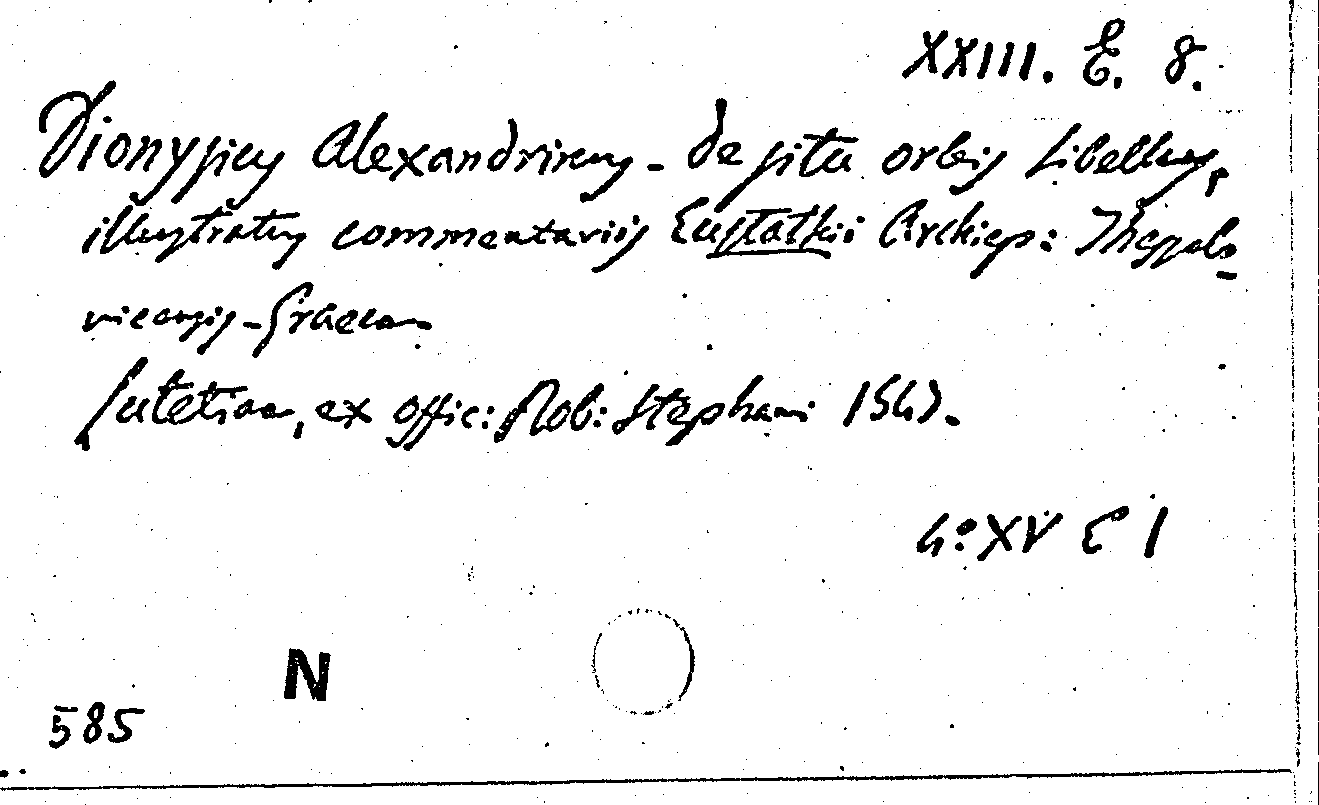 XXIII. E. 8.
Dionysius Alexandrinus - De situ orbis Libellus,
illustratus commentariis Eustathii Archiep: Thessalo-
nicensis - Graece
Lutetiae, ex offic: Rob: Stephani 1547.
4º XV E 1
N
585